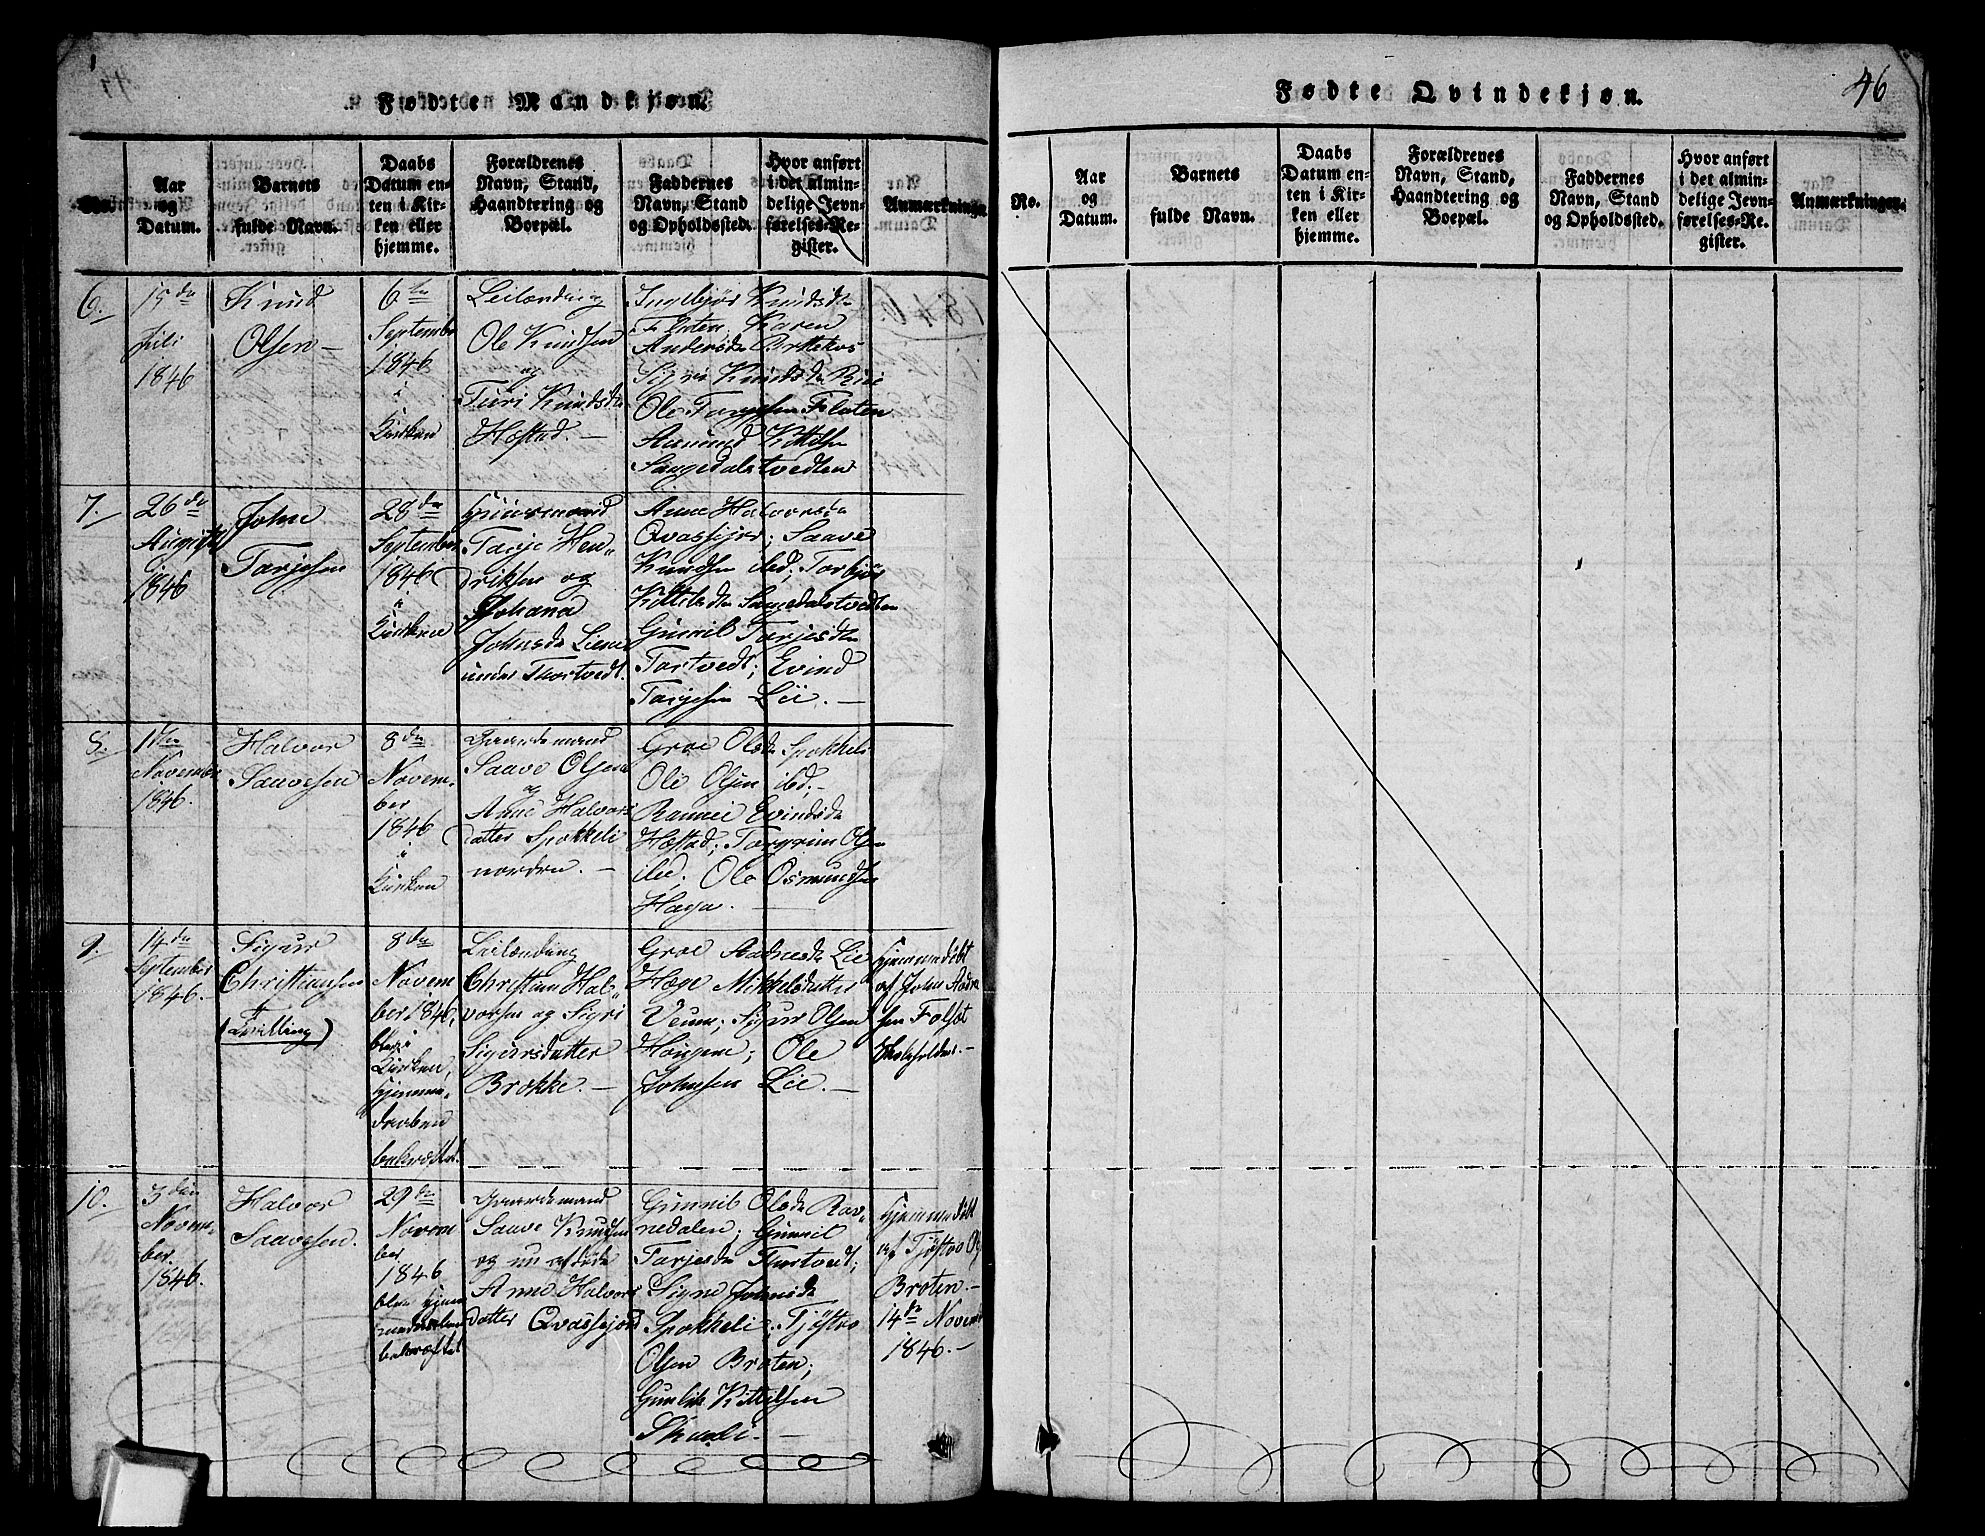 Fødte Mandkjøn.
No.
Aar og Datum.
Barnets fulde Navn.
Daabs Datum enten i Kirken eller hjemme.
Forældrenes Navn, Stand, Haandtering og Boepæl.
Faddernes Navn, Stand og Opholdssted.
Hvor anført i det almindelige Jevnførelses-Register.
Anmærkninger.
6.
15de
Juli
1846
Knud
Olsen
6te
September
1846
i
Kirken
Leilænding
Ole Knudsen
og
Turi Knudsdtr
Hæstad.
Ingebjør Knudsdtr
Flaten; Karen
Andersdtr Brttekos
Sigri Knudsdtr
Ole Tarjesen Flaten
Aamund Kittilsen
Saugedalstvedten
7.
26de
Augusti
1846
John
Tarjesen
28de
September
1846
i
Kirken
Huusmand
Tarje Hen-
driksen og
Johana
Johnsdtr Liene
under Thortvedt.
Anne Halvorsdtr
Qvassjor; Saave
Knudsen ibd; Torbjør
Kittilsdtr Saugedalstvedten
Gunnil Tarjesdtr
Tortvedt; Evind
Tarjesen Lii.
8.
1den
November
1846.
Halvor
Saavesen
8de
Novem-
ber
1846
i
Kirken
Gaardemand
Saave Olsen
og
Anne Halvors
datter Spokkeli
nordre.
Groe Olsdtr Spokkeli
Ole Olsen ibd.
Rannei Evindsdtr
Hæstad; Torgrim Olsen
ibd; Ole Osmundsen
Haga.
9.
14de
September
1846.
Sigur
Christiansen
(Tvilling)
8de
Novem
ber 1846,
blev i
Kirken,
hjemme-
daaben
bekræftet.
Leilænding
Christian Hal-
vorsen og Sigri
Sigursdatter
Brokke.
Groe Aadnesdtr Lie
Hæge Mikkelsdatter
Veum; Sigur Olsen
Haugene; Ole
Johnsen Lie.
hjemmedøbt
af John Aadne
sen Folsæt
10.
3die
Novem-
ber
1846.
Halvor
Saavesen.
29de
Novem
ber
1846
blev hjem
medaaben
bekræftet
Gaardemand
Saave Knudsen
og nu afdøde
Anne Halvors
datter Qvassjord
Gunnil Olsdtr Rav-
nedalen; Gunnil
Tarjesdtr Thortvedt;
Signe Johnsdtr
Spokkeli; Tjøstov
Olsen Broten;
Gunlik Kittilsen
Skueli.
hjemmedøbt
af Tjøstov Ols
Broten.
14de Novemb
1846.
Fødte Qvindekjøn.
46
No.
Aar og Datum.
Barnets fulde Navn.
Daabs Datum enten i Kirken eller hjemme.
Forældrenes Navn, Stand, Haandtering og Boepæl.
Faddernes Navn, Stand og Opholdssted.
Hvor anført i det almindelige Jevnførelses-Register.
Anmærkninger.